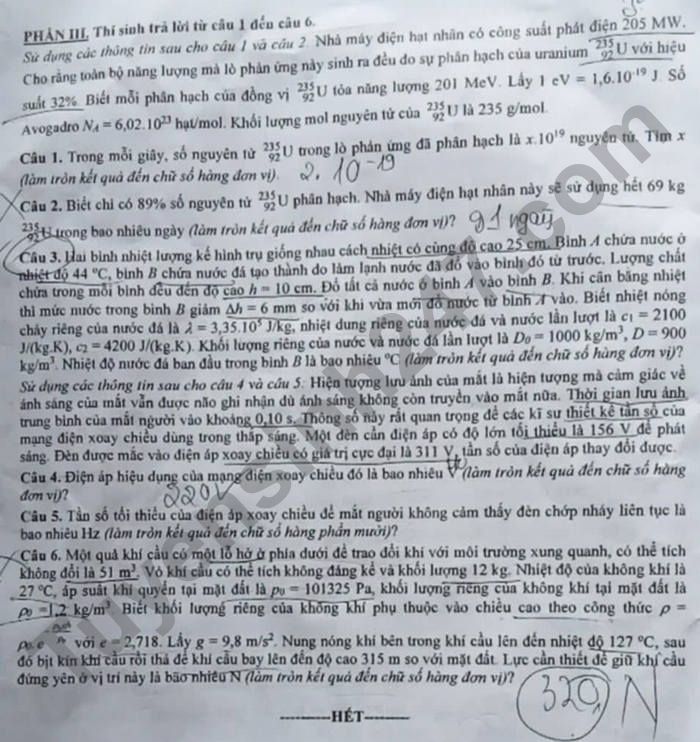 PHẦN III. Thí sinh trả lời từ câu 1 đến câu 6.
Sử dụng các thông tin sau cho câu 1 và câu 2. Nhà máy điện hạt nhân có công suất phát điện 205 MW.
Cho rằng toàn bộ năng lượng mà lò phản ứng này sinh ra đều do sự phân hạch của uranium ²³⁵₉₂U với hiệu
suất 32%. Biết mỗi phân hạch của đồng vị ²³⁵₉₂U tỏa năng lượng 201 MeV. Lấy 1 eV = 1,6.10⁻¹⁹ J. Số
Avogadro N_A = 6,02.10²³ hạt/mol. Khối lượng mol nguyên tử của ²³⁵₉₂U là 235 g/mol.
Câu 1. Trong mỗi giây, số nguyên tử ²³⁵₉₂U trong lò phản ứng đã phân hạch là x.10¹⁹ nguyên tử. Tìm x
(làm tròn kết quả đến chữ số hàng đơn vị). 2.10⁻¹⁹
Câu 2. Biết chỉ có 89% số nguyên tử ²³⁵₉₂U phân hạch. Nhà máy điện hạt nhân này sẽ sử dụng hết 69 kg
²³⁵₉₂U trong bao nhiêu ngày (làm tròn kết quả đến chữ số hàng đơn vị)? 91 ngày
Câu 3. Hai bình nhiệt lượng kế hình trụ giống nhau cách nhiệt có cùng độ cao 25 cm. Bình A chứa nước ở
nhiệt độ 44 °C, bình B chứa nước đá tạo thành do làm lạnh nước đã đổ vào bình đó từ trước. Lượng chất
chứa trong mỗi bình đều đến độ cao h = 10 cm. Đổ tất cả nước ở bình A vào bình B. Khi cân bằng nhiệt
thì mức nước trong bình B giảm Δh = 6 mm so với khi vừa mới đổ nước từ bình A vào. Biết nhiệt nóng
chảy riêng của nước đá là λ = 3,35.10⁵ J/kg, nhiệt dung riêng của nước đá và nước lần lượt là c₁ = 2100
J/(kg.K), c₂ = 4200 J/(kg.K). Khối lượng riêng của nước và nước đá lần lượt là D₀ = 1000 kg/m³, D = 900
kg/m³. Nhiệt độ nước đá ban đầu trong bình B là bao nhiêu °C (làm tròn kết quả đến chữ số hàng đơn vị)?
Sử dụng các thông tin sau cho câu 4 và câu 5: Hiện tượng lưu ảnh của mắt là hiện tượng mà cảm giác về
ánh sáng của mắt vẫn được não ghi nhận dù ánh sáng không còn truyền vào mắt nữa. Thời gian lưu ảnh
trung bình của mắt người vào khoảng 0,10 s. Thông số này rất quan trọng để các kĩ sư thiết kế tần số của
mạng điện xoay chiều dùng trong thắp sáng. Một đèn cần điện áp có độ lớn tối thiểu là 156 V để phát
sáng. Đèn được mắc vào điện áp xoay chiều có giá trị cực đại là 311 V, tần số của điện áp thay đổi được.
Câu 4. Điện áp hiệu dụng của mạng điện xoay chiều đó là bao nhiêu V (làm tròn kết quả đến chữ số hàng
đơn vị)? 220V
Câu 5. Tần số tối thiểu của điện áp xoay chiều để mắt người không cảm thấy đèn chớp nháy liên tục là
bao nhiêu Hz (làm tròn kết quả đến chữ số hàng phần mười)?
Câu 6. Một quả khí cầu có một lỗ hở ở phía dưới để trao đổi khí với môi trường xung quanh, có thể tích
không đổi là 51 m³. Vỏ khí cầu có thể tích không đáng kể và khối lượng 12 kg. Nhiệt độ của không khí là
27 °C, áp suất khí quyển tại mặt đất là p₀ = 101325 Pa, khối lượng riêng của không khí tại mặt đất là
ρ₀ = 1,2 kg/m³. Biết khối lượng riêng của không khí phụ thuộc vào chiều cao theo công thức ρ =
ρ₀.e với e = 2,718. Lấy g = 9,8 m/s². Nung nóng khí bên trong khí cầu lên đến nhiệt độ 127 °C, sau
đó bịt kín khí cầu rồi thả để khí cầu bay lên đến độ cao 315 m so với mặt đất. Lực cần thiết để giữ khí cầu
đứng yên ở vị trí này là bao nhiêu N (làm tròn kết quả đến chữ số hàng đơn vị)?
329 N
HẾT
Tuyensinh247.com